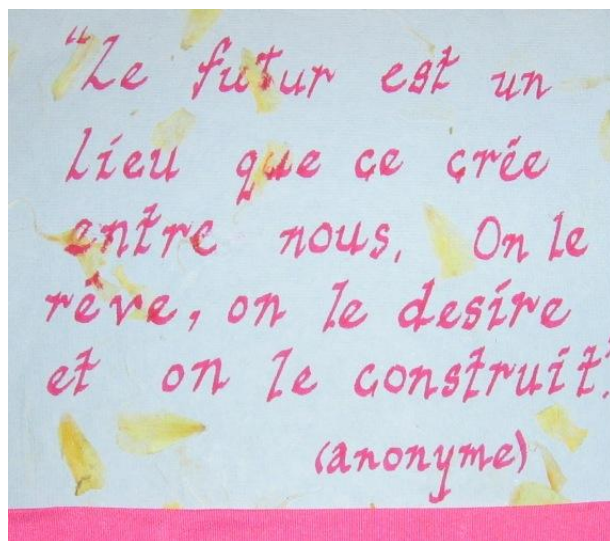 "Le futur est un
lieu que ce crée
entre nous. On le
rêve, on le desire
et on le construit."
(anonyme)